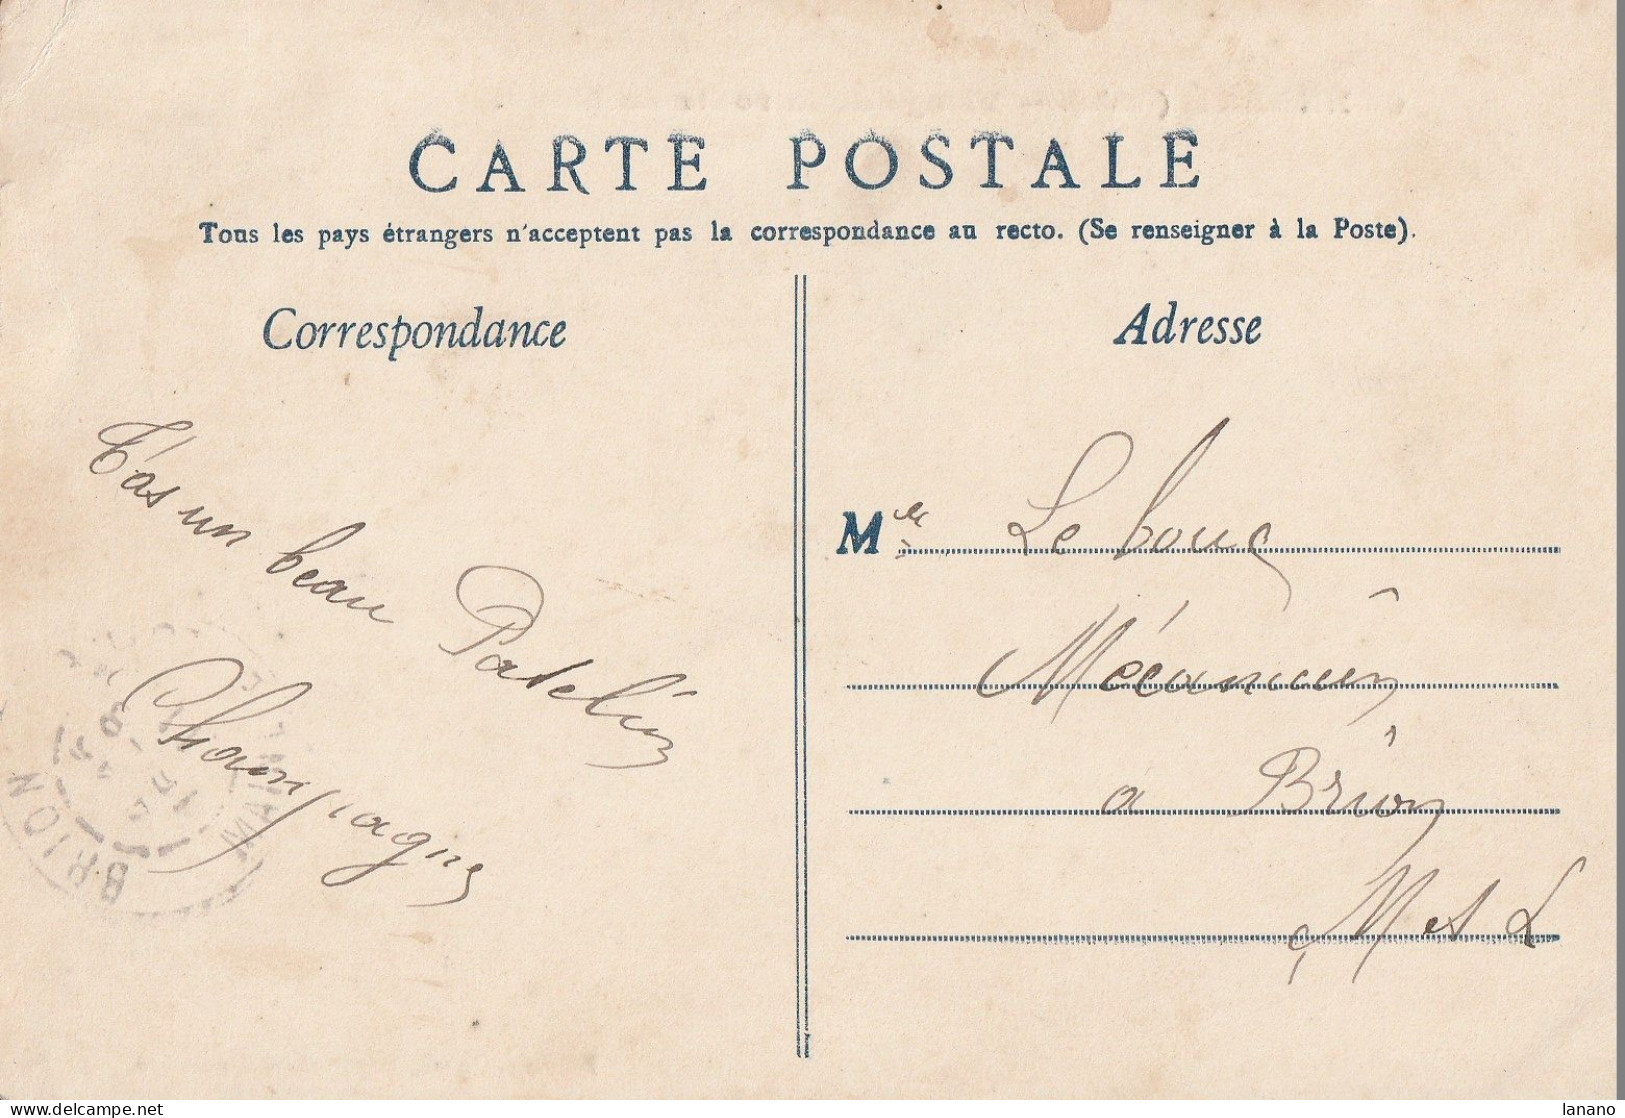 CARTE POSTALE
Tous les pays étrangers n'acceptent pas la correspondance au recto. (Se renseigner à la Poste).
Correspondance
T'as un beau Patelin
Champagne
BRION
Adresse
M Le bouc
Mécanicien
a Brion
M et L
lanano